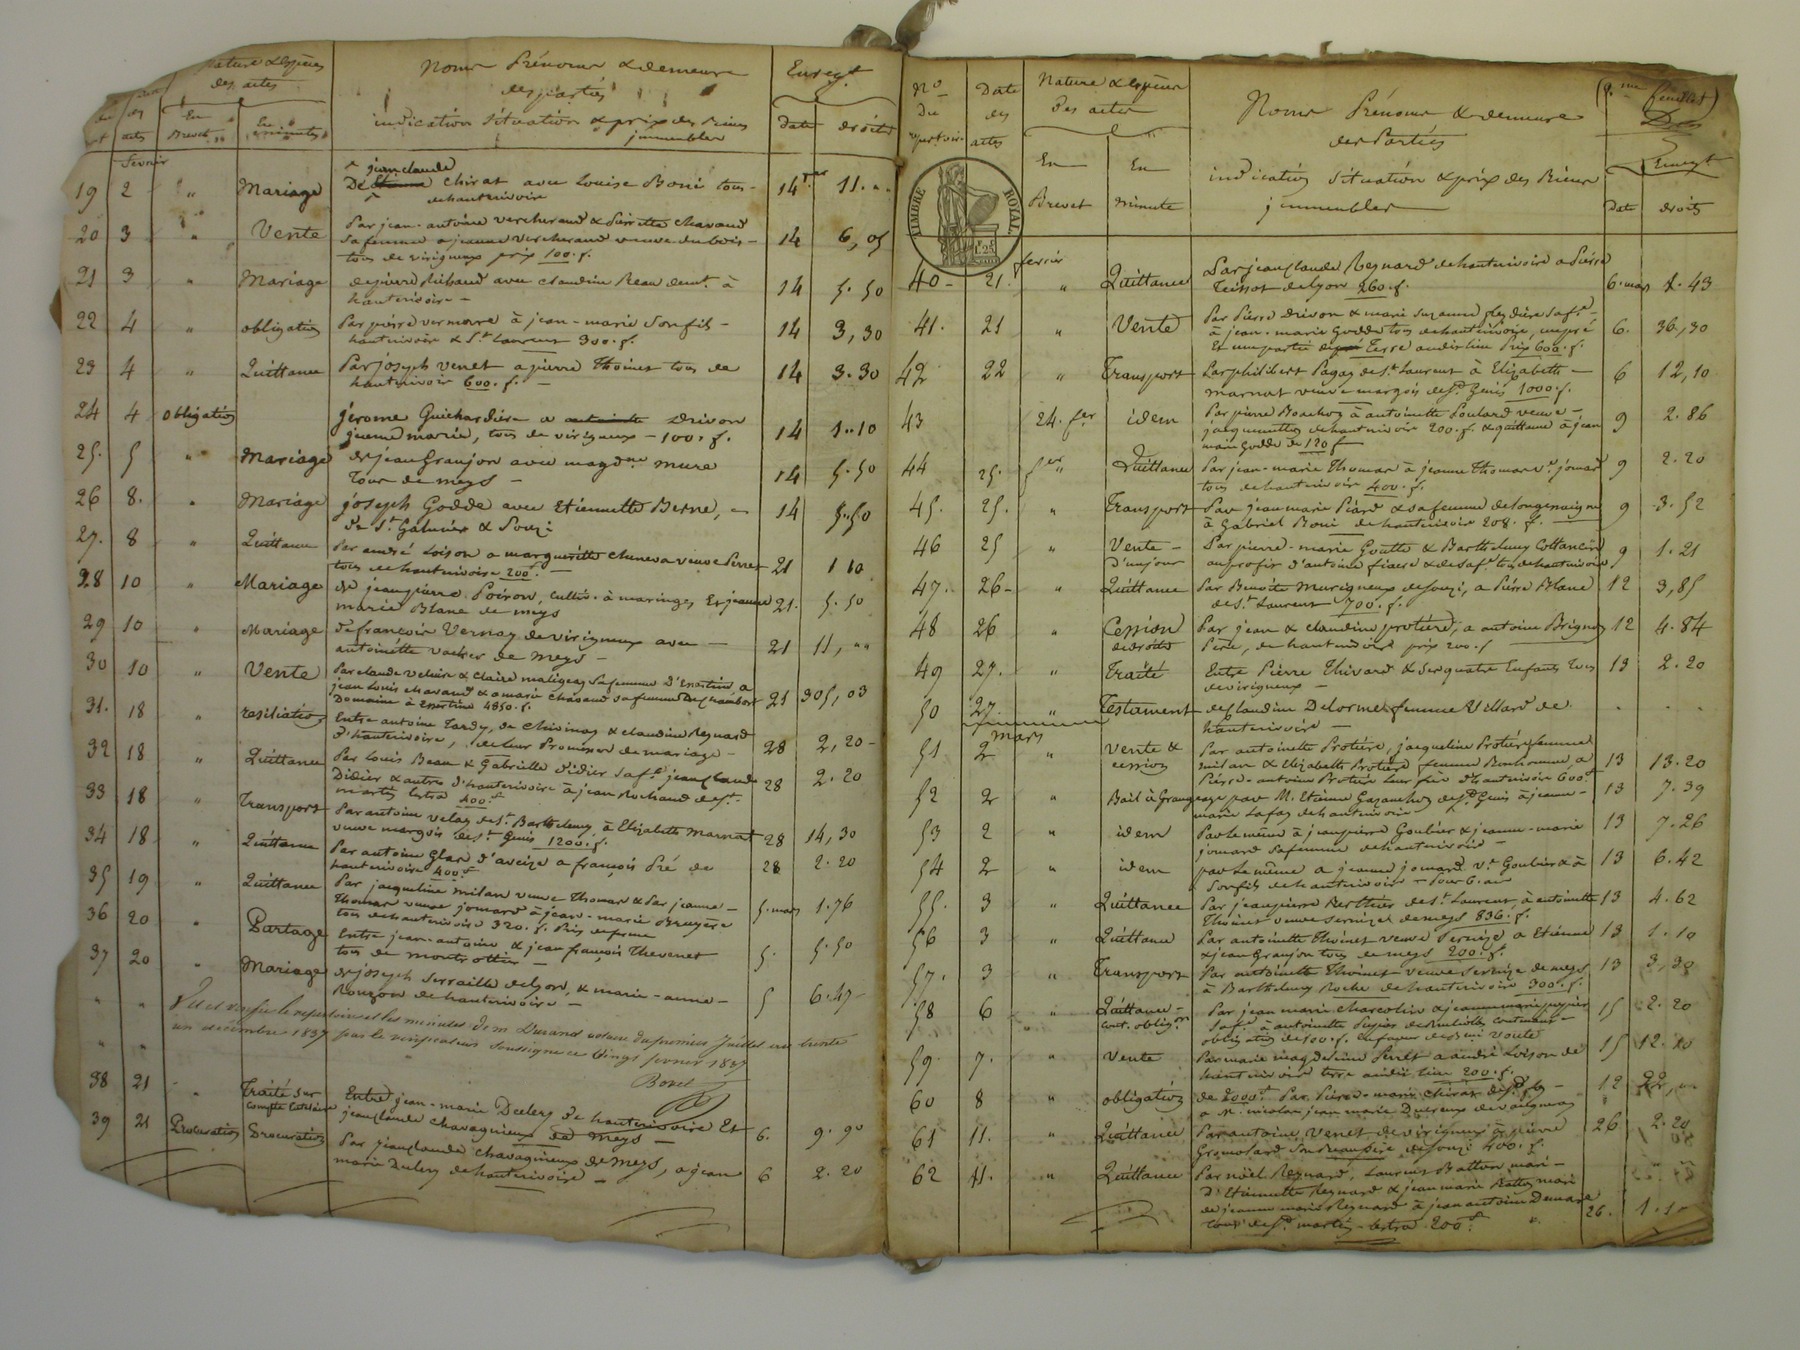 Nature & Espèces
des actes
Noms Prénoms & demeure
des parties
indication situation & prix des Biens
immeubles
Enregt
En Brevet
En minutes
actes
Date
droits
fevrier
jean claude
19 2 " Mariage De Etienne Chirat avec Louise Boni tous 14 fer 11. " "
dehauterivoire
20 3 " Vente Par jean-antoine vercherand & Pierrette Chavand 14 6,05
sa femme a jeanne vercherand veuve
tous de virigneux prix 100. f.
21 3 " Mariage de pierre Richard avec claudine Reau demt. à 14 5.50
hauterivoire -
22 4 " obligation Par pierre vermorre à jean-marie Son fils - 14 3,30
hauterivoire & St Laurent 300. f.
23 4 " Quittance Par joseph venet a pierre Thoinet tous de 14 3.30
hauterivoir 600. f. -
24 4 obligation jérome Guichardière a antoinette Drivon 14 1.10
femme marie, tous de virigneux - 100. f.
25. 5 " Mariage de jean Granjon avec magdne mure 14 5.50
Tous de meys -
26 8. " Mariage joseph Godde avec Etiennette Berne, 14 5.50
de St. Galmier & Souzi
27. 8 " Quittance Par andré Loison a margueritte veuve Perret 21 1 10
tous de hauterivoire 200f. -
28 10 " Mariage de jean pierre Poiron, cultivr. à maringes, Et jeanne 21. 5.50
marie Blanc de meys
29 10 " Mariage De francois Vernay de virigneux avec - 21 11, " "
antoinette vacher de Meys -
30 10 " Vente Par claude & Claire maligeay Sa femme D'Essertine, a 21 305,03
jean Louis chavand & a marie Chavand sa femme
Domaine à Essertine 4850. f.
31. 18 " resiliation Entre antoine Tardy, de & claudine Regnard 28 2,20 -
d'hauterivoire, de leur Promesse de mariage -
32 18 " Quittance Par Louis Beau & Gabrielle Didier Safe jean claude 28 2.20
Didier & autres d'hauterivoire à jean Rochand de St.
martin Lestra 400. f
33 18 " Transport Par antoine velay de St. Barthelemy, à Elizabeth Marnat 28 14,30
veuve margois de St. Genis 1200. f.
34 18 " Quittance Par antoine Glas d'aveize a françois Pré de 28 2.20
hauterivoire 400. f
35 19 " Quittance Par jacqueline milan veuve Thomas & Par jeanne - 5. mars 1.76
Thomas veuve jomard à jean-marie Bruyère
tous de hauterivoire 320. f.
36 20 " Partage Entre jean-antoine & jean françois Thevenet 5. 5.50
tous de montrottier -
37 20 " Mariage de joseph Serraille de Lyon, & marie-anne - 5 6.47
Rouzon de hauterivoire -
" " Vu et vérifié le repertoire et les minutes de M Durand notaire du premier juillet au trente
un décembre 1837 par le vérificateur soussigné ce vingt fevrier 1837
Borel
38 21 " Traité sur Entre jean-marie Dulery de hauterivoire Et 6. 9.90
compte tutelaire jean claude Chavagnieux de Meys -
39 21 Procuration Procuration Par jean claude Chavagnieux de Meys, a jean 6 2.20
marie Dulery de hauterivoire -
No
Du
repertoire
Date
des
actes
Nature & Espèces
Des actes
En
Brevet
En
minute
Noms Prénoms & demeure
des Parties
indication situation & prix des Biens
immeubles
(2.me feuillet)
Enregt
Date droits
TIMBRE ROYAL
1F 25C
fevrier
40 - 21. " Quittance Par jean claude Regnard de hauterivoire a Pierre 6. mars 1.43
Teissot de Lyon 260. f.
41. 21 " Vente Par Pierre Drivon & marie Suzanne Safe. 6. 36,30
à jean-marie Godde tous de hauterivoire, un pré
Et une partie de pré Terre au dit lieu Prix 600. f.
42 22 " Transport Par philibert Pagay de St. Laurent à Elizabeth - 6 12,10
marnat veuve margois de St. Genis 1000. f.
43 24. fer idem Par pierre Bouchoz à antoinette Poulard veuve - 9 2.86
de hauterivoir 200. f. & quittance à jean
marie Godde de 120 f
44 25. fer " Quittance Par jean-marie Thomas à jeanne Thomas ve. jomard 9 2.20
tous de hauterivoire 400. f.
45. 25. " Transport Par jean marie Piard & sa femme de Longessaigne 9 3.52
à Gabriel Boni de hauterivoire 208. f.
46 25 " Vente - Par pierre-marie Goutte & Barthelemy Cottancin 9 1.21
d'un jour au profit d'antoine & de Safe. tous de hauterivoire
47. 26 - " Quittance Par Benoite Murigneux de Souzi, a Pierre Blanc 12 3,85
de St. Laurent 700. f.
48 26 " Cession Par jean & claudine protière, a antoine Brignoz 12 4.84
de droits Père, de hauterivoire prix 200. f
49 27. " Traité Entre Pierre Thivard & Ses quatre Enfants tous 13 2.20
de virigneux -
50 27. " Testament de Claudine Delorme femme Villard de . .
hauterivoir -
mars
51 2 " Vente & Par antoinette Protière, jacqueline Protière femme 13 13.20
cession milan & Elizabeth Protière femme Bonhomme, a
Pierre-antoine Protière leur frère d'hauterivoir 600f
52 2 " Bail à Grangeage par M. Etienne Gazanchon de St. Genis à jeanne - 13 7.39
marie Lafay de hauterivoire
53 2 " idem Par le même à jean pierre Goubier & jeanne-marie 13 7.26
jomard sa femme de hauterivoire -
54 2 " idem par Le même a jeanne jomard ve. Goubier & à 13 6.42
Son fils de hauterivoir - Pour 6. ans
55. 3 " Quittance Par jean pierre Berthier de St. Laurent, à antoinette 13 4.62
Thoinet veuve Sernize de meys 836. f.
56 3 " Quittance Par antoinette Thoinet veuve Sernize a Etienne 13 1.10
& jean Granjon tous de meys 200. f.
57. 3 " Transport Par antoinette Thoinet veuve Sernize de meys 13 3,30
à Barthelemy Roche de hauterivoir 300. f.
58 6 " Quittance - Par jean marie Charcotin & jeanne marie 15 2.20
cont. obligon Safe. à antoinette contenant -
obligation de 100. f.
59. 7. " Vente Par marie magdelaine Perret a andré Loison de 15 12.10
hauterivoir terre au dit lieu 200. f.
60 8 " obligation de 2000f. Par Pierre-marie Chirat 12 22,"
a M. nicolas jean marie
61 11. " Quittance Par antoine Venet de virigneux à pierre 26 2.20
Grimolard Son Beau père de Souzi 400. f.
62 11. " Quittance Par noël Regnard, Laurent Batton mari -
D'Etiennette Regnard & jean marie mari
de jeanne marie Regnard à jean antoine 26. 1.10
tous de St. martin-Lestra 200. f